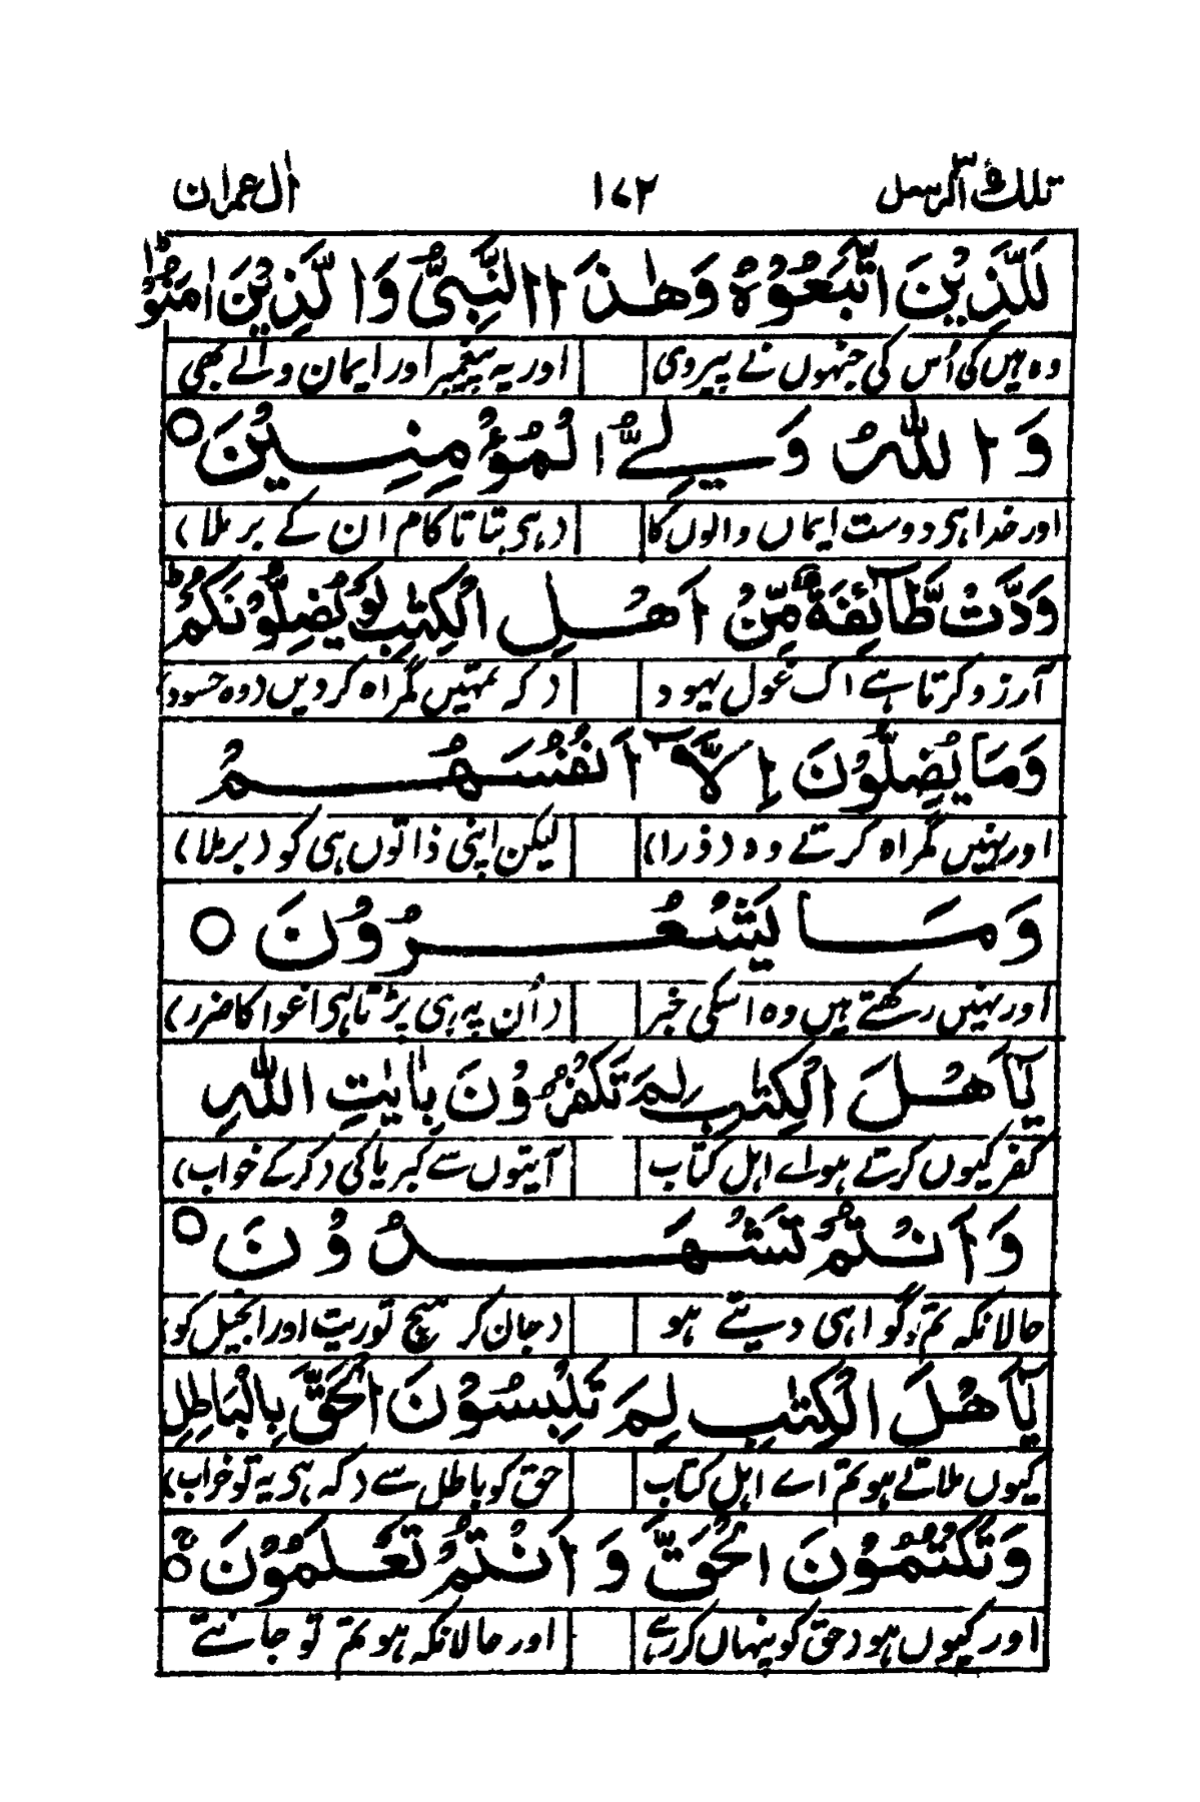 تلك الرسل ۱۷۲ اٰل عمران
لَلَّذِيْنَ اتَّبَعُوْهُ وَهٰذَا النَّبِيُّ وَالَّذِيْنَ اٰمَنُوْا ؕ
وہ ہیں کی اُس کی جنہوں نے پیروی اور یہ پیغمبر اور ایمان والے بھی
وَاللّٰهُ وَلِيُّ الْمُؤْمِنِيْنَ ○
اور خدا ہی دوست ایماں والوں کا (ہی بناتا کام ان کے برملا)
وَدَّتْ طَّآئِفَةٌ مِّنْ اَهْلِ الْكِتٰبِ لَوْ يُضِلُّوْنَكُمْ ؕ
آرزو کرتا ہے اک غول یہود (کہ تمہیں گمراہ کردیں (وہ حسود)
وَمَا يُضِلُّوْنَ اِلَّاۤ اَنْفُسَهُمْ
اور نہیں گمراہ کرتے وہ (ذرا) لیکن اپنی ذاتوں ہی کو (برملا)
وَمَا يَشْعُرُوْنَ ○
اور نہیں رکھتے ہیں وہ اسکی خبر (اُن پہ ہی پڑتا ہی اغوا کا ضرر)
يٰۤاَهْلَ الْكِتٰبِ لِمَ تَكْفُرُوْنَ بِاٰيٰتِ اللّٰهِ
کفر کیوں کرتے ہو اے اہل کتاب آیتوں سے کبریا کی (کرکے خواب)
وَاَنْتُمْ تَشْهَدُوْنَ ○
حالانکہ تم گواہی دیتے ہو (جان کر سچ توریت اور انجیل کو)
يٰۤاَهْلَ الْكِتٰبِ لِمَ تَلْبِسُوْنَ الْحَقَّ بِالْبَاطِلِ
کیوں ملاتے ہو تم اے اہل کتاب حق کو باطل سے (کہ ہی یہ تو خراب)
وَتَكْتُمُوْنَ الْحَقَّ وَاَنْتُمْ تَعْلَمُوْنَ ○
اور کیوں ہو (حق کو پنہاں کر رہے اور حالانکہ ہو تم تو جانتے